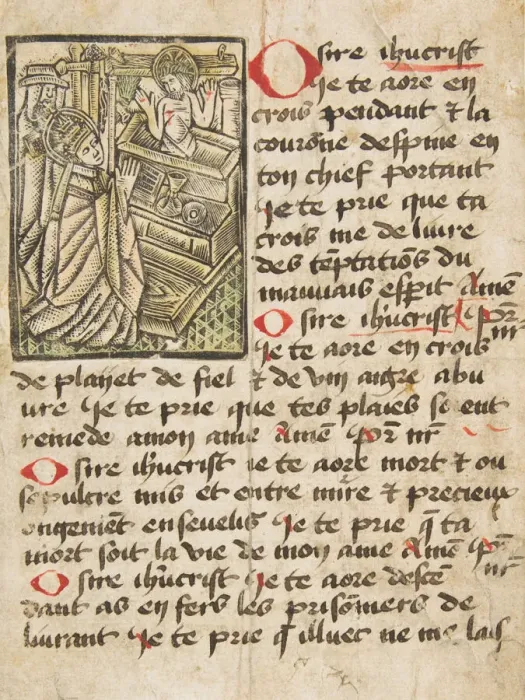 O sire ihucrist
Je te aore en
crois pendant ⁊ la
couronne despine en
ton chief portant
Je te prie que ta
crois me delivre
des tēptatiōs du
mauvais esp̄it Amē
O sire ihucrist Pr̄ nr̄
Je te aore en crois
de playet de fiel ⁊ de vin aigre abu
vre Je te prie que tes plaies soient
remede amon ame Amē Pr̄ nr̄
O sire ihucrist ie te aore mort ⁊ ou
sepulcre mis et entre mire ⁊ precieux
ongemēt ensevelis Je te prie q̄ ta
mort soit la vie de mon ame Amē Pr̄ nr̄
O sire ihucrist Je te aore descē
dant as en fers les prisōniers de
livrant Je te prie q̄ illuec ne me lais